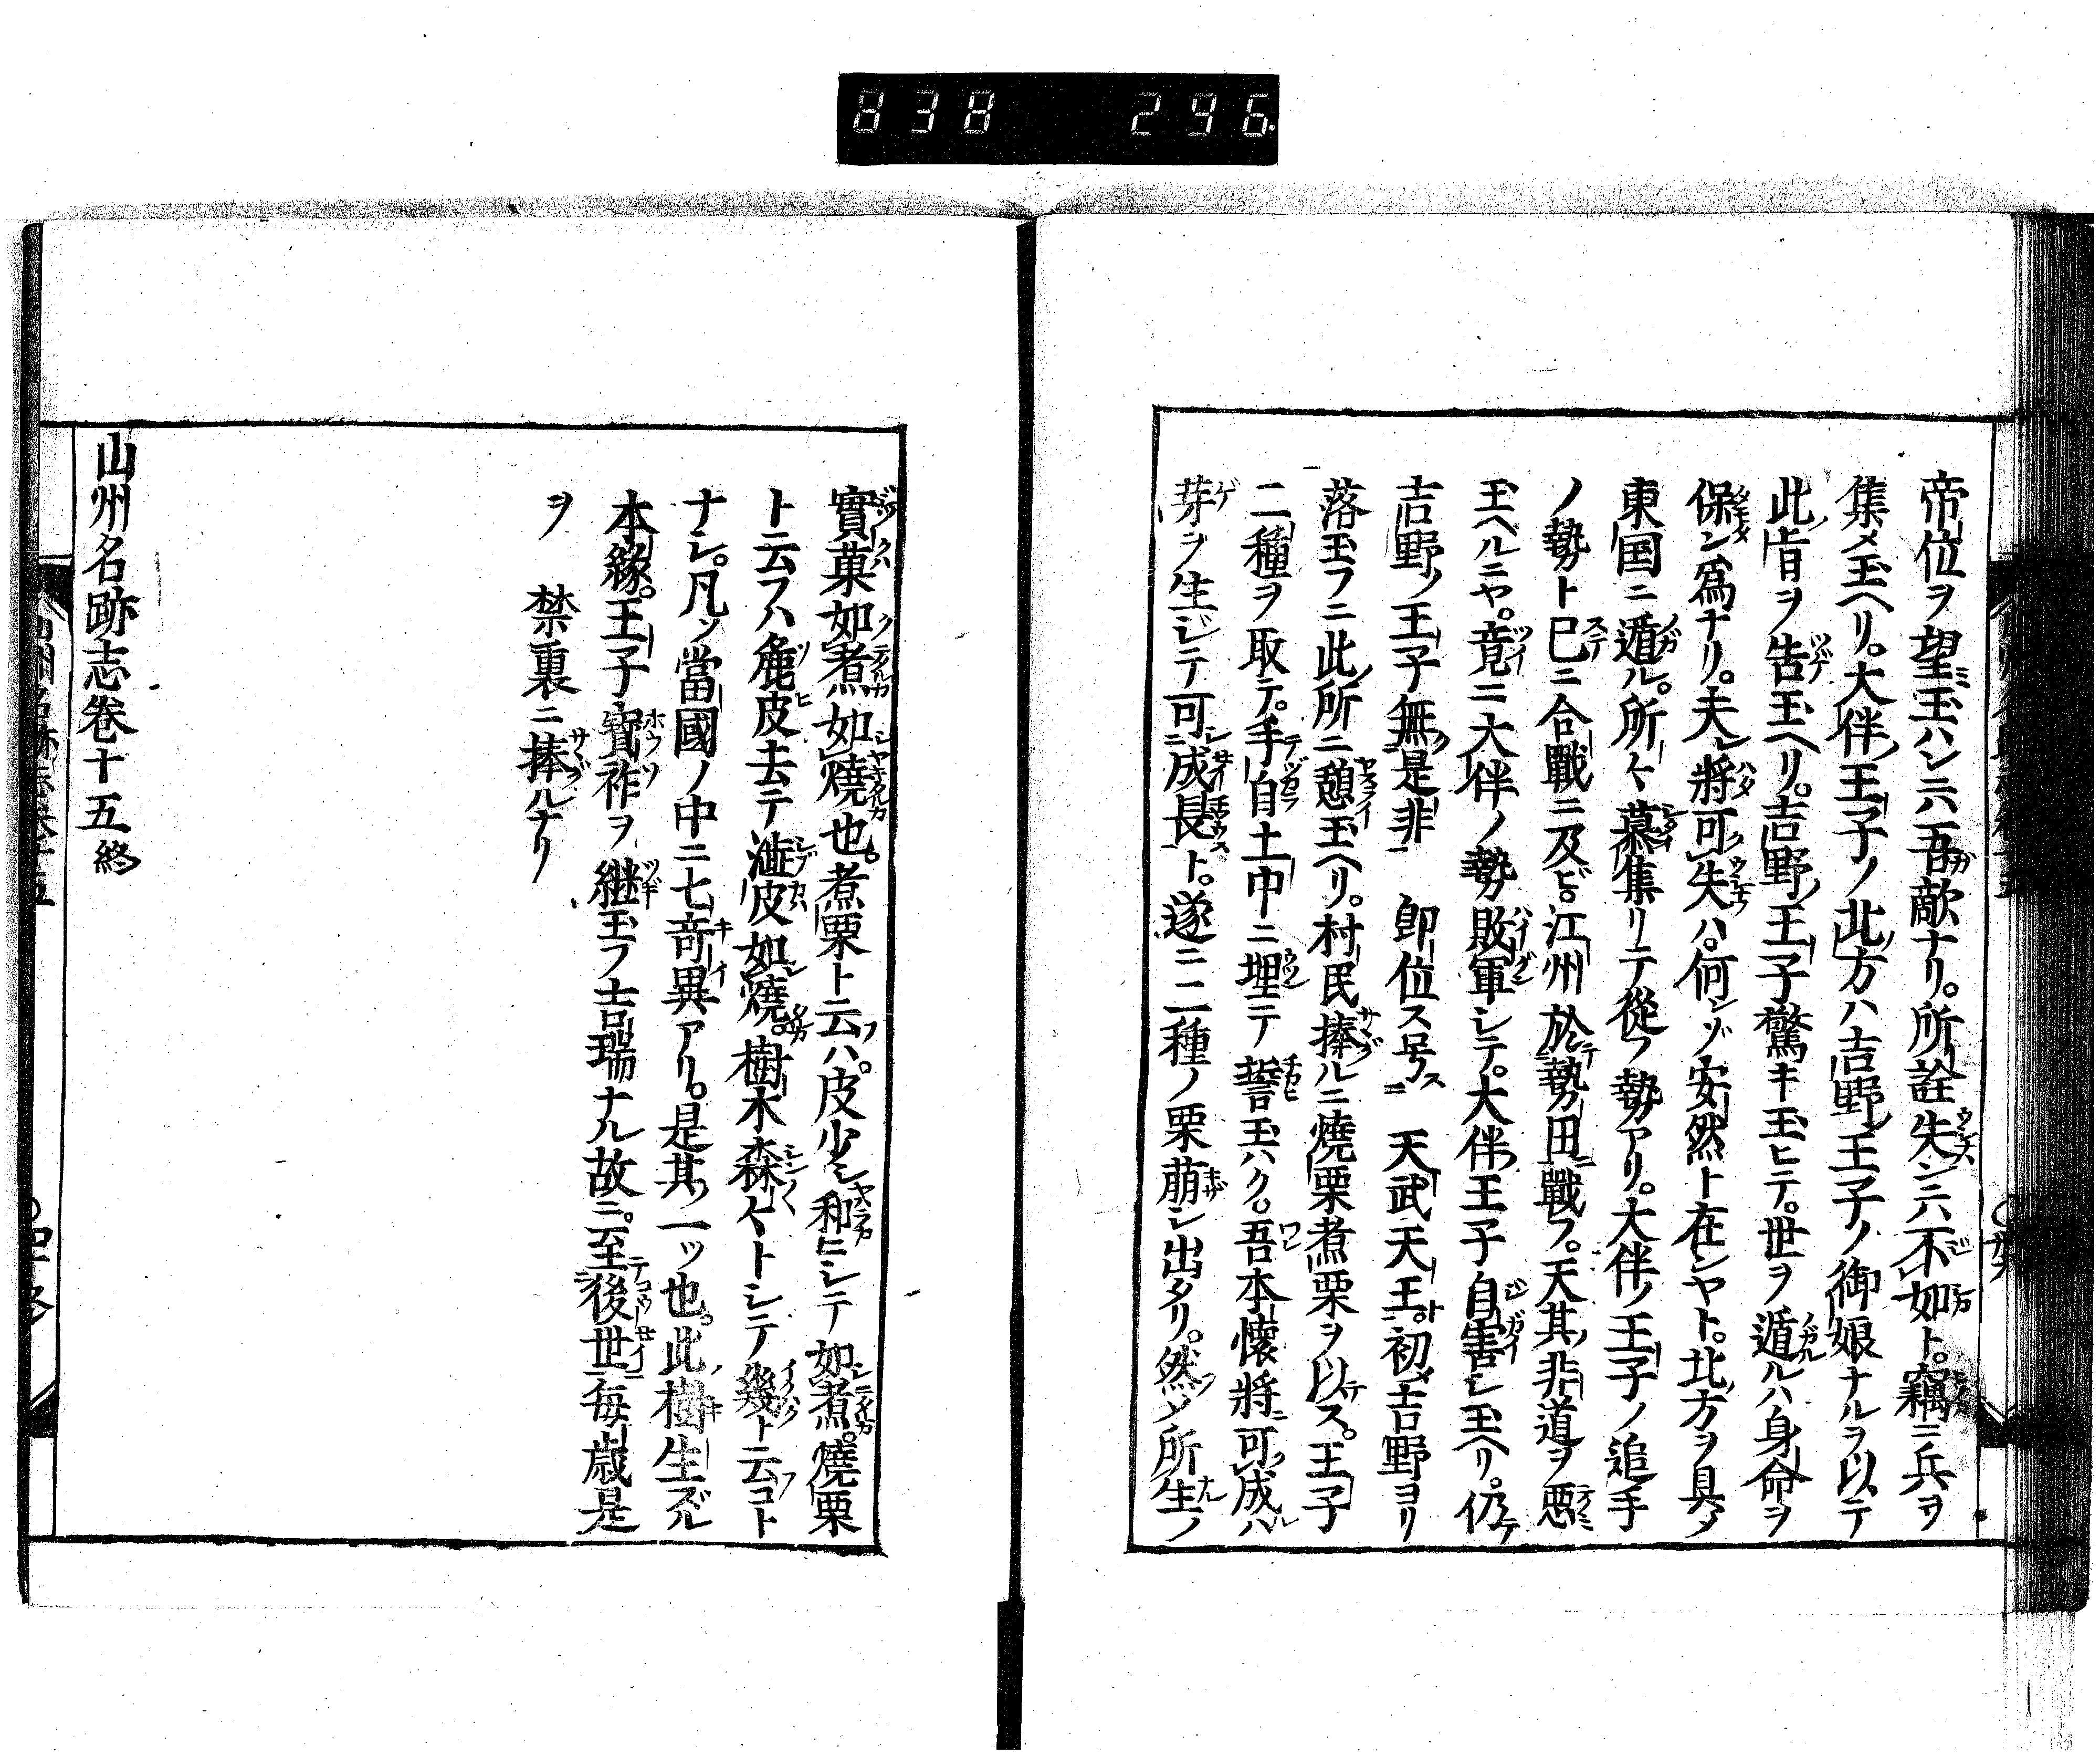 838 296
帝位ヲ望ミ玉ハンニハ吾敵ナリ。所詮失ンニハ不如ト。竊ニ兵ヲ
集メ玉ヘリ。大伴ノ王子ノ北ノ方ハ吉野ノ王子ノ御娘ナルヲ以テ
此ノ旨ヲ告玉ヘリ。吉野ノ王子驚キ玉ヒテ。世ヲ遁ルハ身命ヲ
保ン為ナリ。夫レ將可失ハ。何ンゾ安然ト在ンヤト。北方ヲ具メ
東国ニ遁ル。所々慕集リテ從フ勢アリ。大伴ノ王子ノ追手
ノ勢ト已ニ合戰ニ及ビ。江州於勢田戰フ。天其ノ非道ヲ惡
玉ヘルニヤ。竟ニ大伴ノ勢敗軍シテ。大伴王子自害シ玉ヘリ。仍テ
吉野ノ王子無是非 卽位ス号ス 天武天王ト。初メ吉野ヨリ
落玉フニ此ノ所ニ憩玉ヘリ。村民捧ルニ燒栗煮栗ヲ以ス。王子
二種ヲ取テ。手自土中ニ埋テ誓玉ハク。吾本懷將可成ハ
芽ヲ生ジテ可成長ト。遂ニ二種ノ栗萠シ出タリ。然ソ所生ノ
實菓如煮如燒也。煮栗ト云ハ。皮少シ和ニシテ如煮。燒栗
ト云フハ麁皮去テ澁皮如燒。樹木森々トシテ幾ト云コト
ナシ。凡ソ當國ノ中ニ七奇異アリ。是其ノ一ッ也。此樹生ズル
本緣。王子寳祚ヲ継玉フ吉瑞ナル故ニ。至後世毎歳是
ヲ 禁裏ニ捧ルナリ
山州名跡志卷十五終